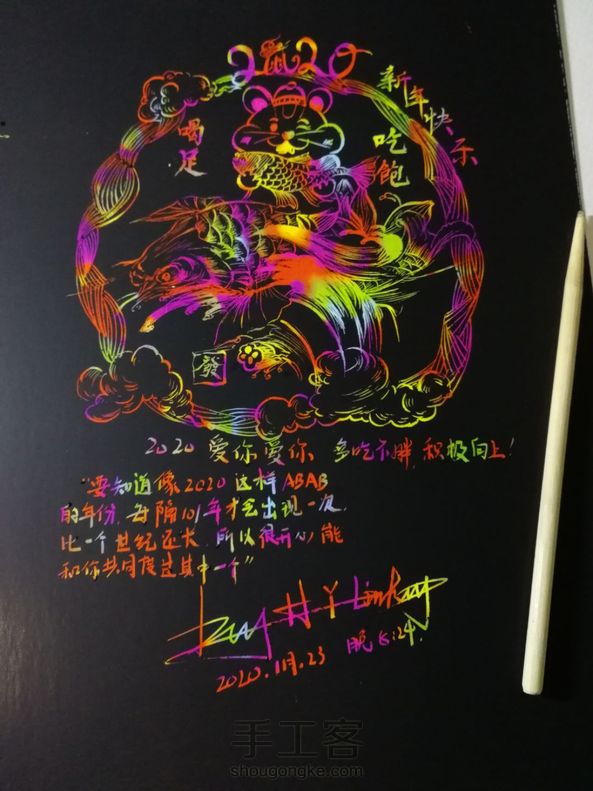 2鼠20
新年快乐
喝足
吃飽
發
2020 爱你爱你 多吃不胖 积极向上!
"要知道像2020这样ABAB
的年份,每隔101年才会出现一次,
比一个世纪还长,所以很开心能
和你共同度过其中一个"
2020.11月.23 晚
手工客
shougongke.com